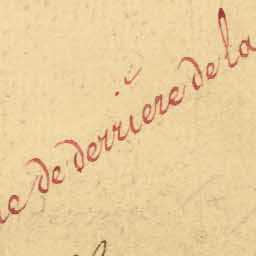 de derriere de la